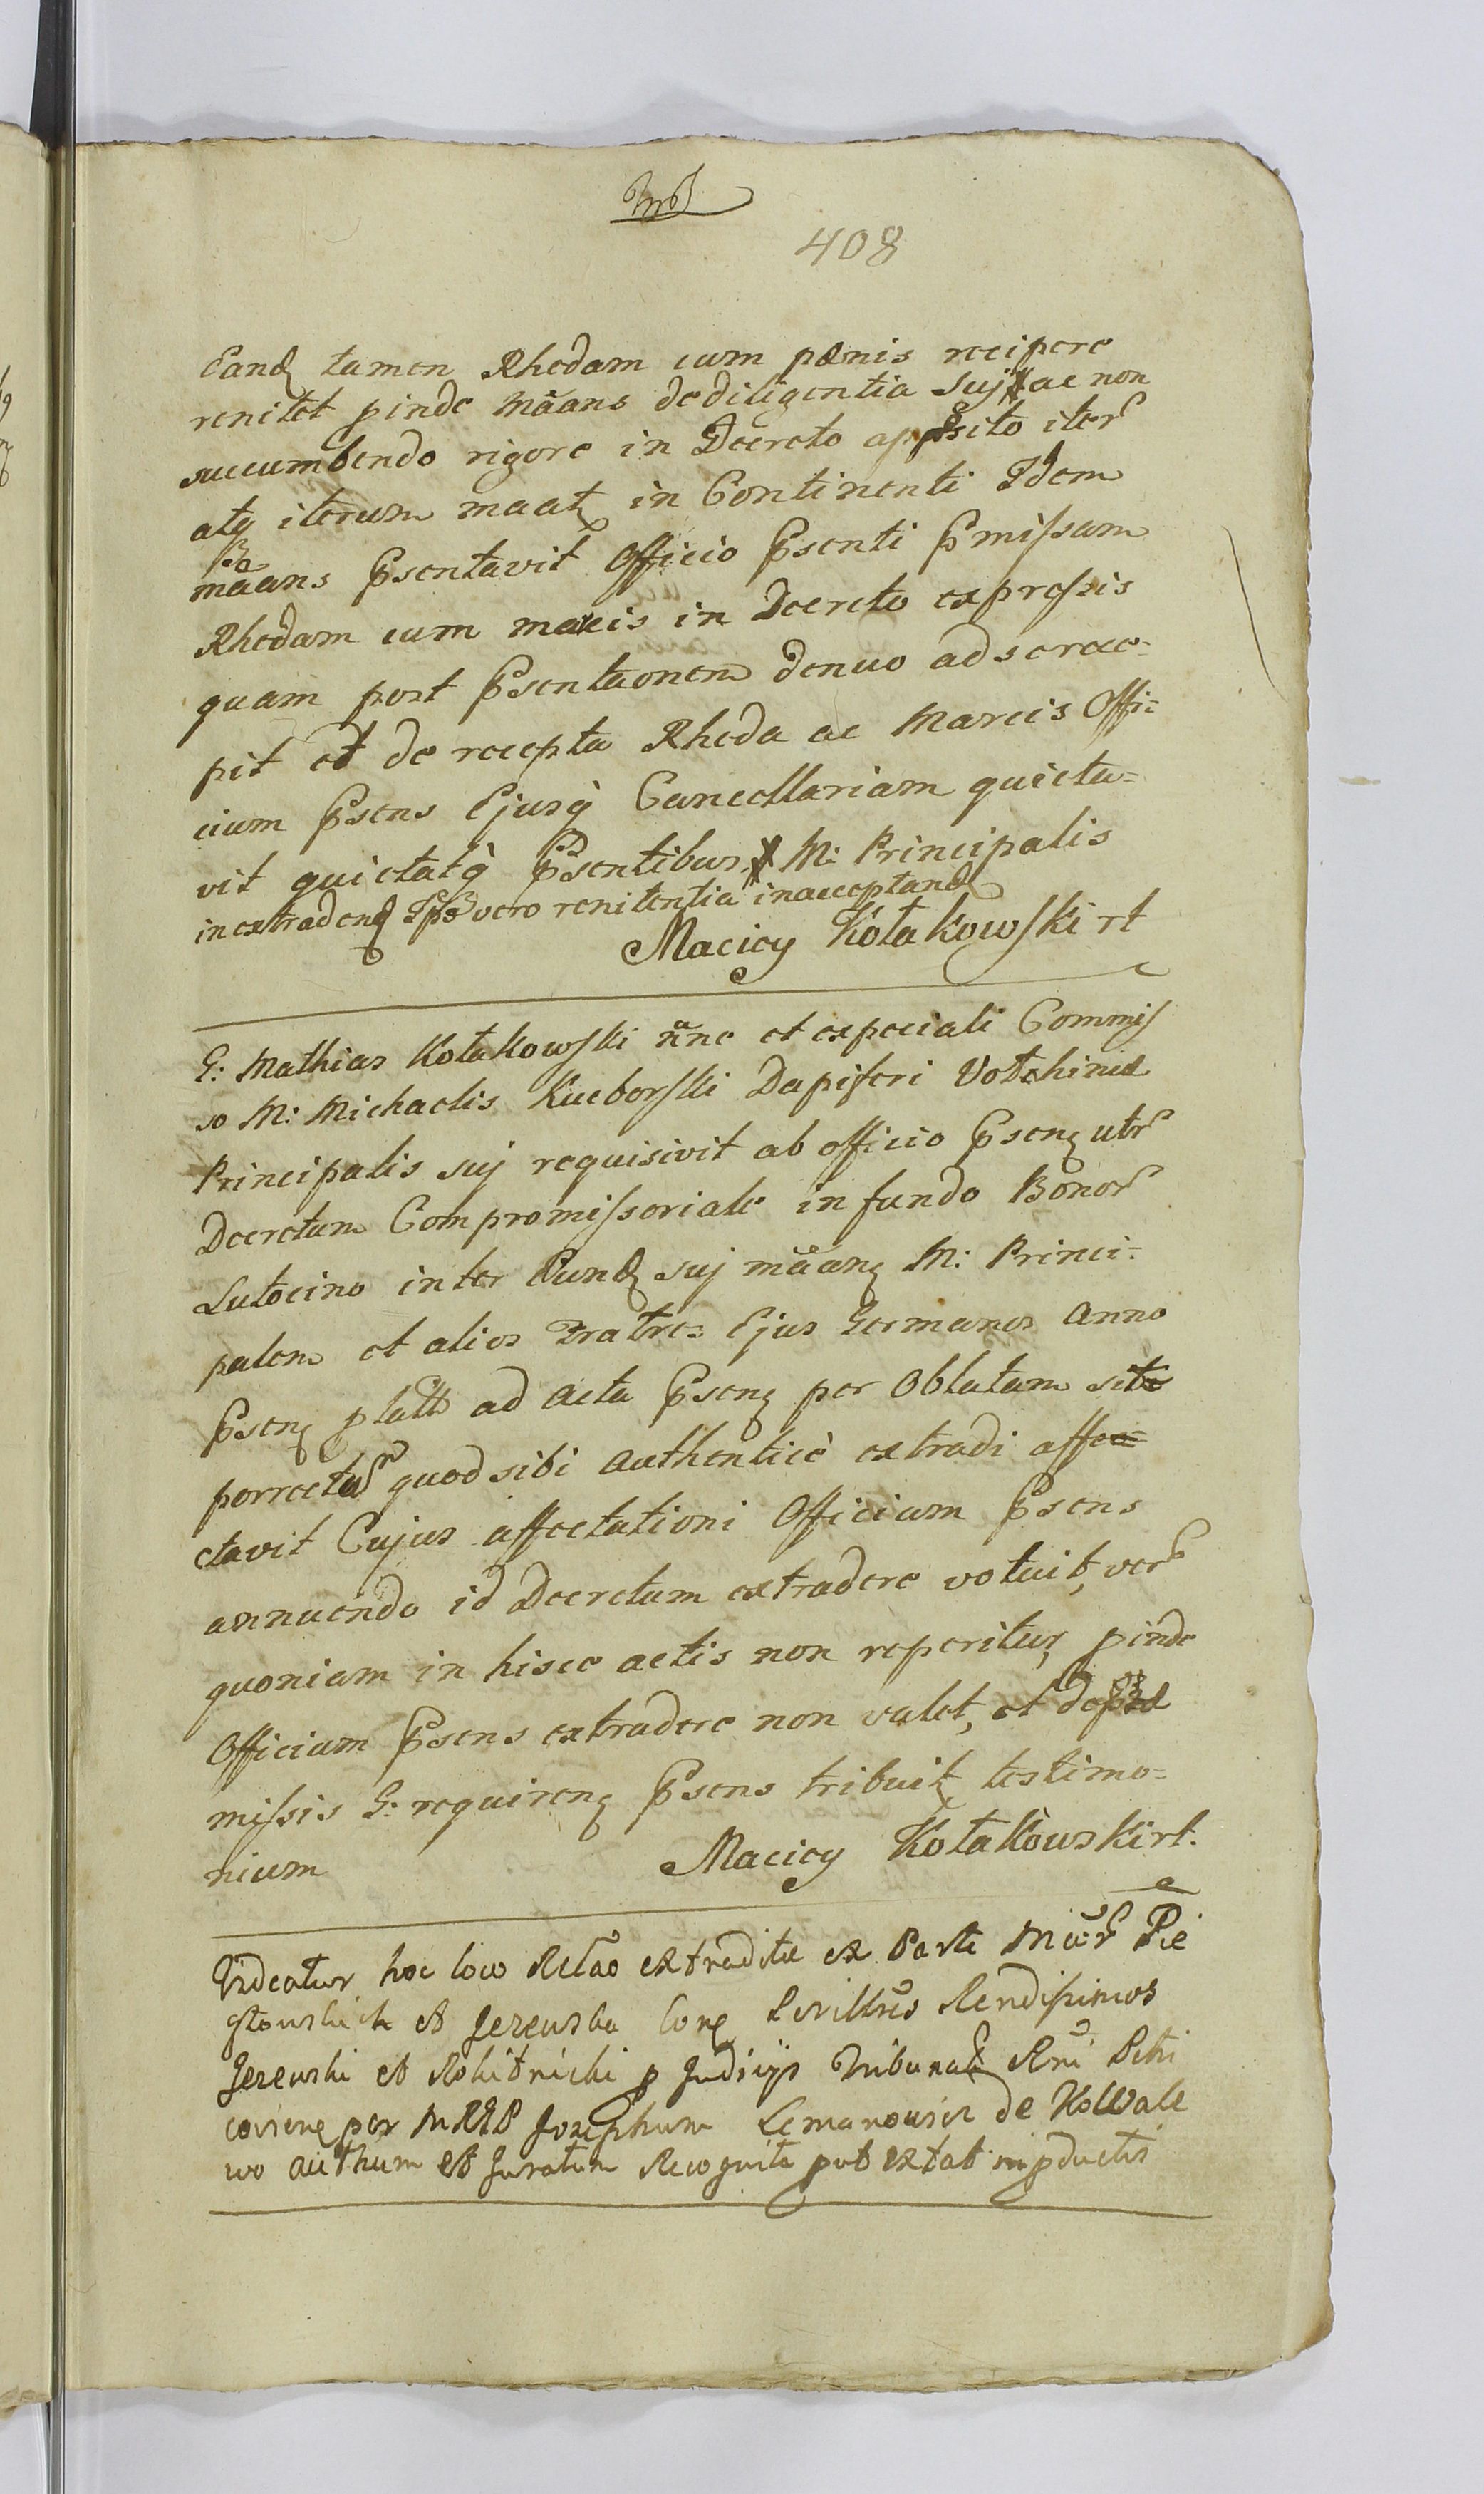 408
Eand tamen Rhedam cum pænis recipere
renitet pinde mãans de diligentia Suj ac non
succumbendo rigore in Decreto apposito iter
atq iterum maat in Continenti Idem
mãans Psentavit Officio Psenti Pmissam
Rhedam cum marcis in Decreto expressis
quam post Psentaonem denuo ad se rece-
pit et de recepta Rheda ac Marcis Offi=
cium Psens Ejusq Cancellariam quieta=
vit quietatq Psentibus M: Principalis
in extradend Ipso vero renitentia in acceptand
Maciey Kołakowski rt
G: Mathias Kołakowski nõne et expeciali Commis
so M: Michaelis Kucborski Dapiferi
Principalis suj requisivit ab officio Psen utr
Decretum Compromissoriale in fundo Bonor
Lutocino inter Eund suj mãan M: Princi=
palem et alios Fratres Ejus Germanos Anno
Psen platt ad Acta Psen per Oblatam sit
porrectu quod sibi Authenticè extradi affe
ctavit Cujus affectationi Officium Psens
annuendo id Decretum extradere voluit, ver
quoniam in hisce actis non reperitur pinde
Officium Psens extradere non valet, et de
missis G: requiren Psens tribuit testimo=
nium
Maciey Kołakowski rt.
Videatur hoc loco Relão extraditæ ex Parte
et Jezewska Con Rendissimos
Jezewski et Rokitnicki p Judicijs Tribunal Rni
per MRP Josephum de Kowale
wo authum et Juratum Recognita put extat in pductis